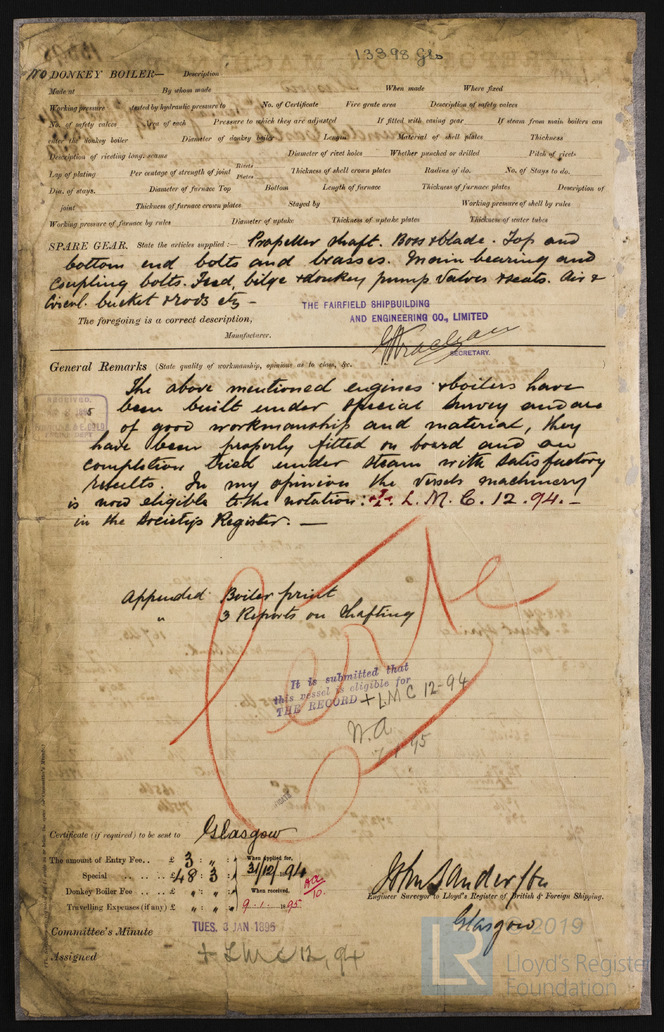 13398 Gls
No DONKEY BOILER— Description
Made at By whom made When made Where fixed
Working pressure tested by hydraulic pressure to No. of Certificate Fire grate area Description of safety valves
No. of safety valves Area of each Pressure to which they are adjusted If fitted with easing gear If steam from main boilers can
enter the donkey boiler Diameter of donkey boiler Length Material of shell plates Thickness
Description of riveting long. seams Diameter of rivet holes Whether punched or drilled Pitch of rivets
Lap of plating Per centage of strength of joint Rivets Plates Thickness of shell crown plates Radius of do. No. of Stays to do.
Dia. of stays. Diameter of furnace Top Bottom Length of furnace Thickness of furnace plates Description of
joint Thickness of furnace crown plates Stayed by Working pressure of shell by rules
Working pressure of furnace by rules Diameter of uptake Thickness of uptake plates Thickness of water tubes
SPARE GEAR. State the articles supplied:— Propeller shaft. Boss & blade. Top and
bottom end bolts and brasses. Main bearing and
coupling bolts. Feed, bilge & donkey pump valves & seats. Air &
Circul. bucket & rods etc —
The foregoing is a correct description,
THE FAIRFIELD SHIPBUILDING
AND ENGINEERING CO., LIMITED
Manufacturer.
SECRETARY.
General Remarks (State quality of workmanship, opinions as to class, &c.
The above mentioned engines & boilers have
been built under special survey and are
of good workmanship and material, they
have been properly fitted on board and on
completion tried under steam with satisfactory
results. In my opinion the vessels machinery
is now eligible to the notation: + L. M. C. 12. 94. —
in the Society's Register. —
Appended Boiler print
" 3 Reports on Shafting
It is submitted that
this vessel is eligible for
THE RECORD + LMC 12-94
Certificate (if required) to be sent to Glasgow
The amount of Entry Fee .. £ 3 : " : When applied for,
Special .. £ 48 : 3 : 31/12/94
Donkey Boiler Fee .. £ " : " : When received,
Travelling Expenses (if any) £ " : " : 9.1.95
John Sanderson
Engineer Surveyor to Lloyd's Register of British & Foreign Shipping.
Glasgow
Committee's Minute TUES. 8 JAN 1895
Assigned + LMC 12, 94
© 2019
LR
Lloyd's Register
Foundation